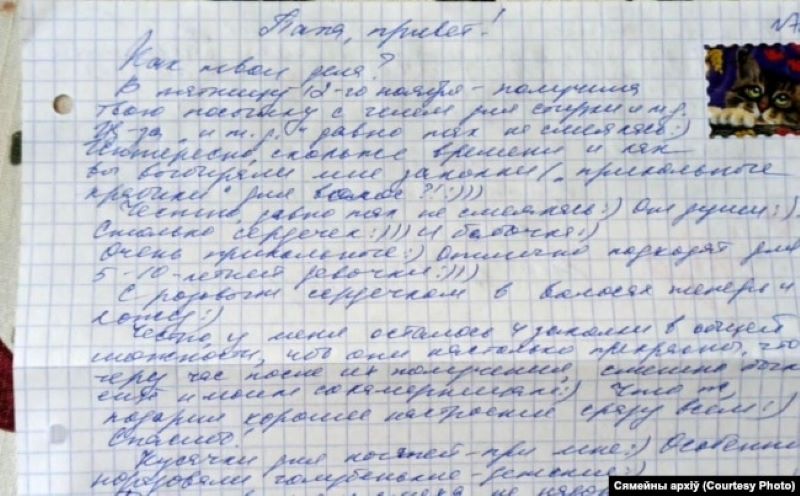 Папа, привет!
№7
Как твои дела?
В пятницу 12-го ноября - получила
твою посылку с гелем для стирки и т.д.
Из-за "и т.д." давно так не смеялась:)
Интересно, сколько времени и как
вы выбирали мне заколки/"прикольные
крабики" для волос?!:)))
Честно, давно так не смеялась:) От души:)
Столько сердечек:))) И бабочка:)
Очень прикольные:) Отлично подходят для
5-10-летней девочки:)))
С розовым сердечком в волосах теперь и
хожу:)
Честно, у меня осталось 4 заколки в общей
сложности, что они настолько прекрасны, что
через час после их получения,
и моим сокамерницам:) Что ж,
подарил хорошее настроение сразу всем!)
Спасибо,
Кусачки для ногтей - при мне:) Особенно
порадовали голубенькие - детские:)
не надо
Сямейны архіў (Courtesy Photo)